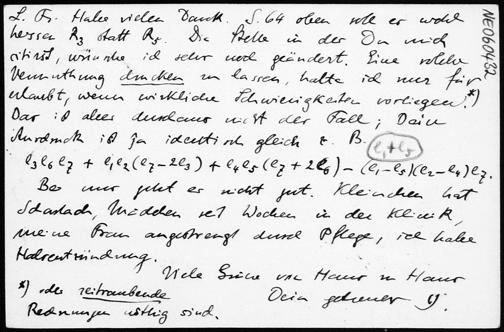 L. Fr. Habe vielen Dank. S. 64 oben soll er wohl
heissen R3 statt R5. Die Stelle in der Du mich
citirst, wünsche ich sehr noch geändert. Eine solche
Vermuthung drucken zu lassen, halte ich nur für
erlaubt, wenn wirkliche Schwierigkeiten vorliegen.*)
Das ist aber durchaus nicht der Fall; Dein
Ausdruck ist ja identisch gleich z. B. (e1+e5)
e3e6e7 + e1e2(e7-2e3) + e4e5(e7+2e6) - (e1-e5)(e2-e4)e7.
Bei mir geht es nicht gut. Kleinchen hat
Scharlach, Mädchen seit Wochen in der Klinik,
meine Frau angestrengt durch Pflege, ich habe
Halsentzündung.
Viele Grüsse von Haus zu Haus
Dein getreuer
*) oder zeitraubende
Rechnungen nöthig sind.
NE060432